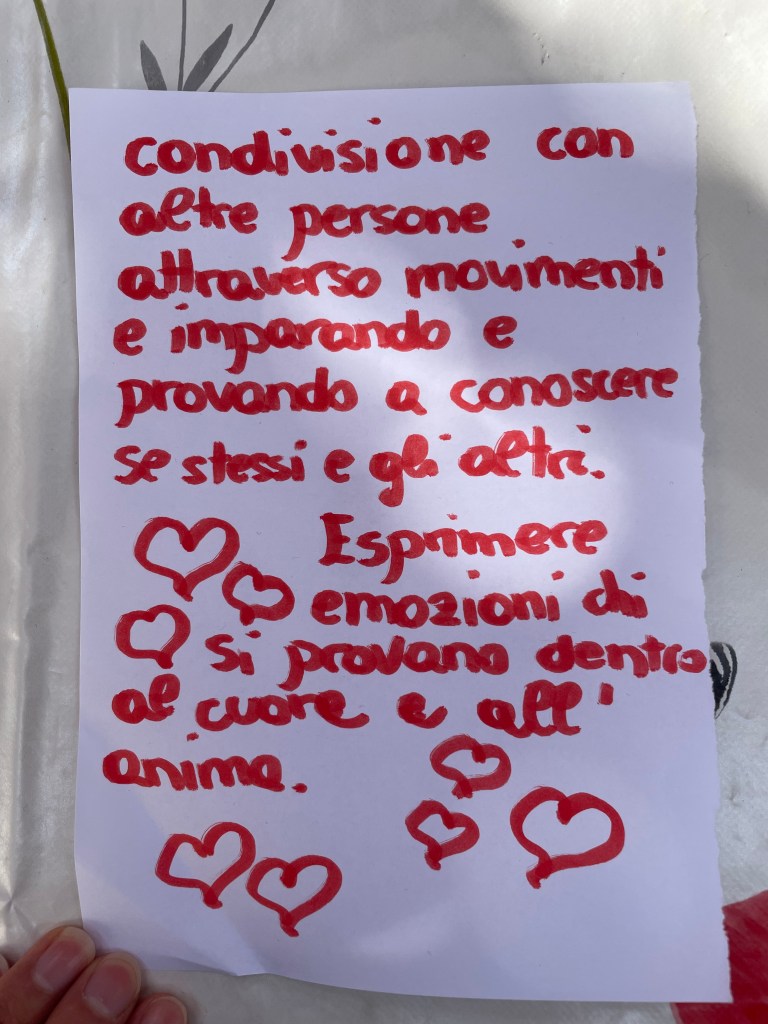 condivisione con
altre persone
attraverso movimenti
e imparando e
provando a conoscere
se stessi e gli altri.
Esprimere
emozioni chi
si provano dentro
al cuore e all'
anima.